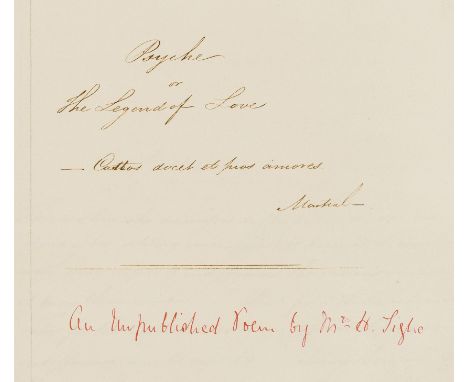 Psyche
or
The Legend of Love
— Castos docet et pios amores
Martial —
An Unpublished Poem by Mrs H. Tighe